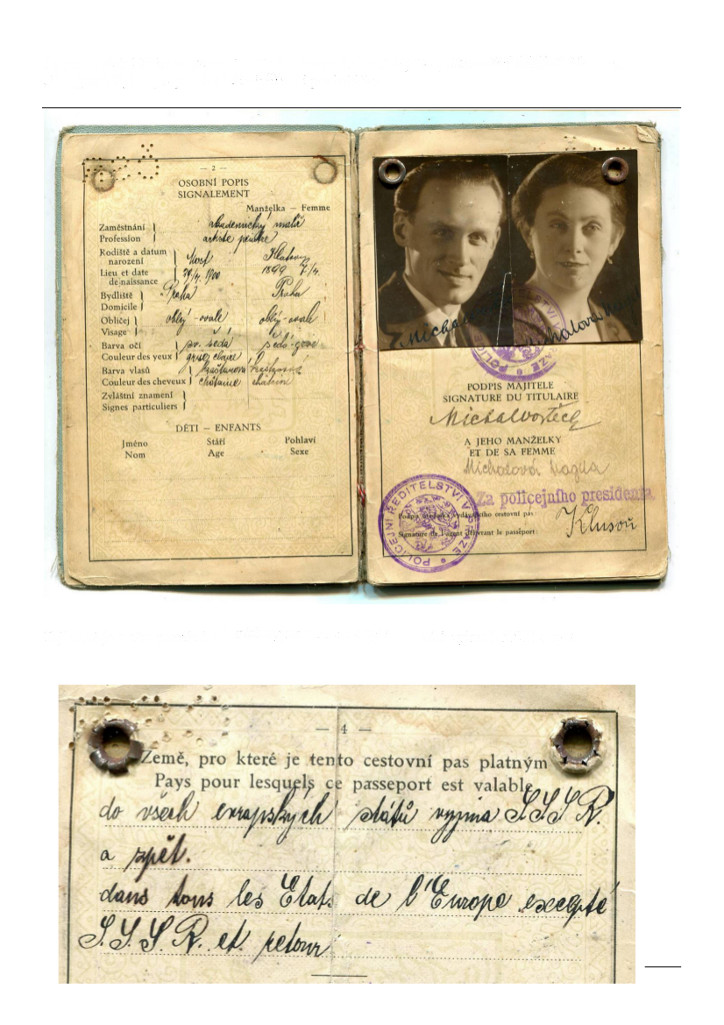 — 2 —
OSOBNÍ POPIS
SIGNALEMENT
Manželka – Femme
Zaměstnání
Profession
akademický malíř
artiste peintre
Rodiště a datum
narození
Lieu et date
de naissance
Most
Klatovy
1900
1899 7/4.
Bydliště
Domicile
Praha
Praha
Obličej
Visage
oblý-ovale
oblý-ovale
Barva očí
Couleur des yeux
šedá
Barva vlasů
Couleur des cheveux
kaštanová
châtaine
Zvláštní znamení
Signes particuliers
DĚTI – ENFANTS
Jméno Stáří Pohlaví
Nom Age Sexe
PODPIS MAJITELE
SIGNATURE DU TITULAIRE
A JEHO MANŽELKY
ET DE SA FEMME
Michalová
Za policejního presidenta
POLICEJNÍ ŘEDITELSTVÍ V PRAZE
cestovní pas:
Signature de l'agent délivrant le passeport:
— 4 —
Země, pro které je tento cestovní pas platným
Pays pour lesquels ce passeport est valable
do všech evropských států vyjma S.S.S.R.
a zpět.
dans tous les Etats de l'Europe excepté
S.S.S.R. et retour